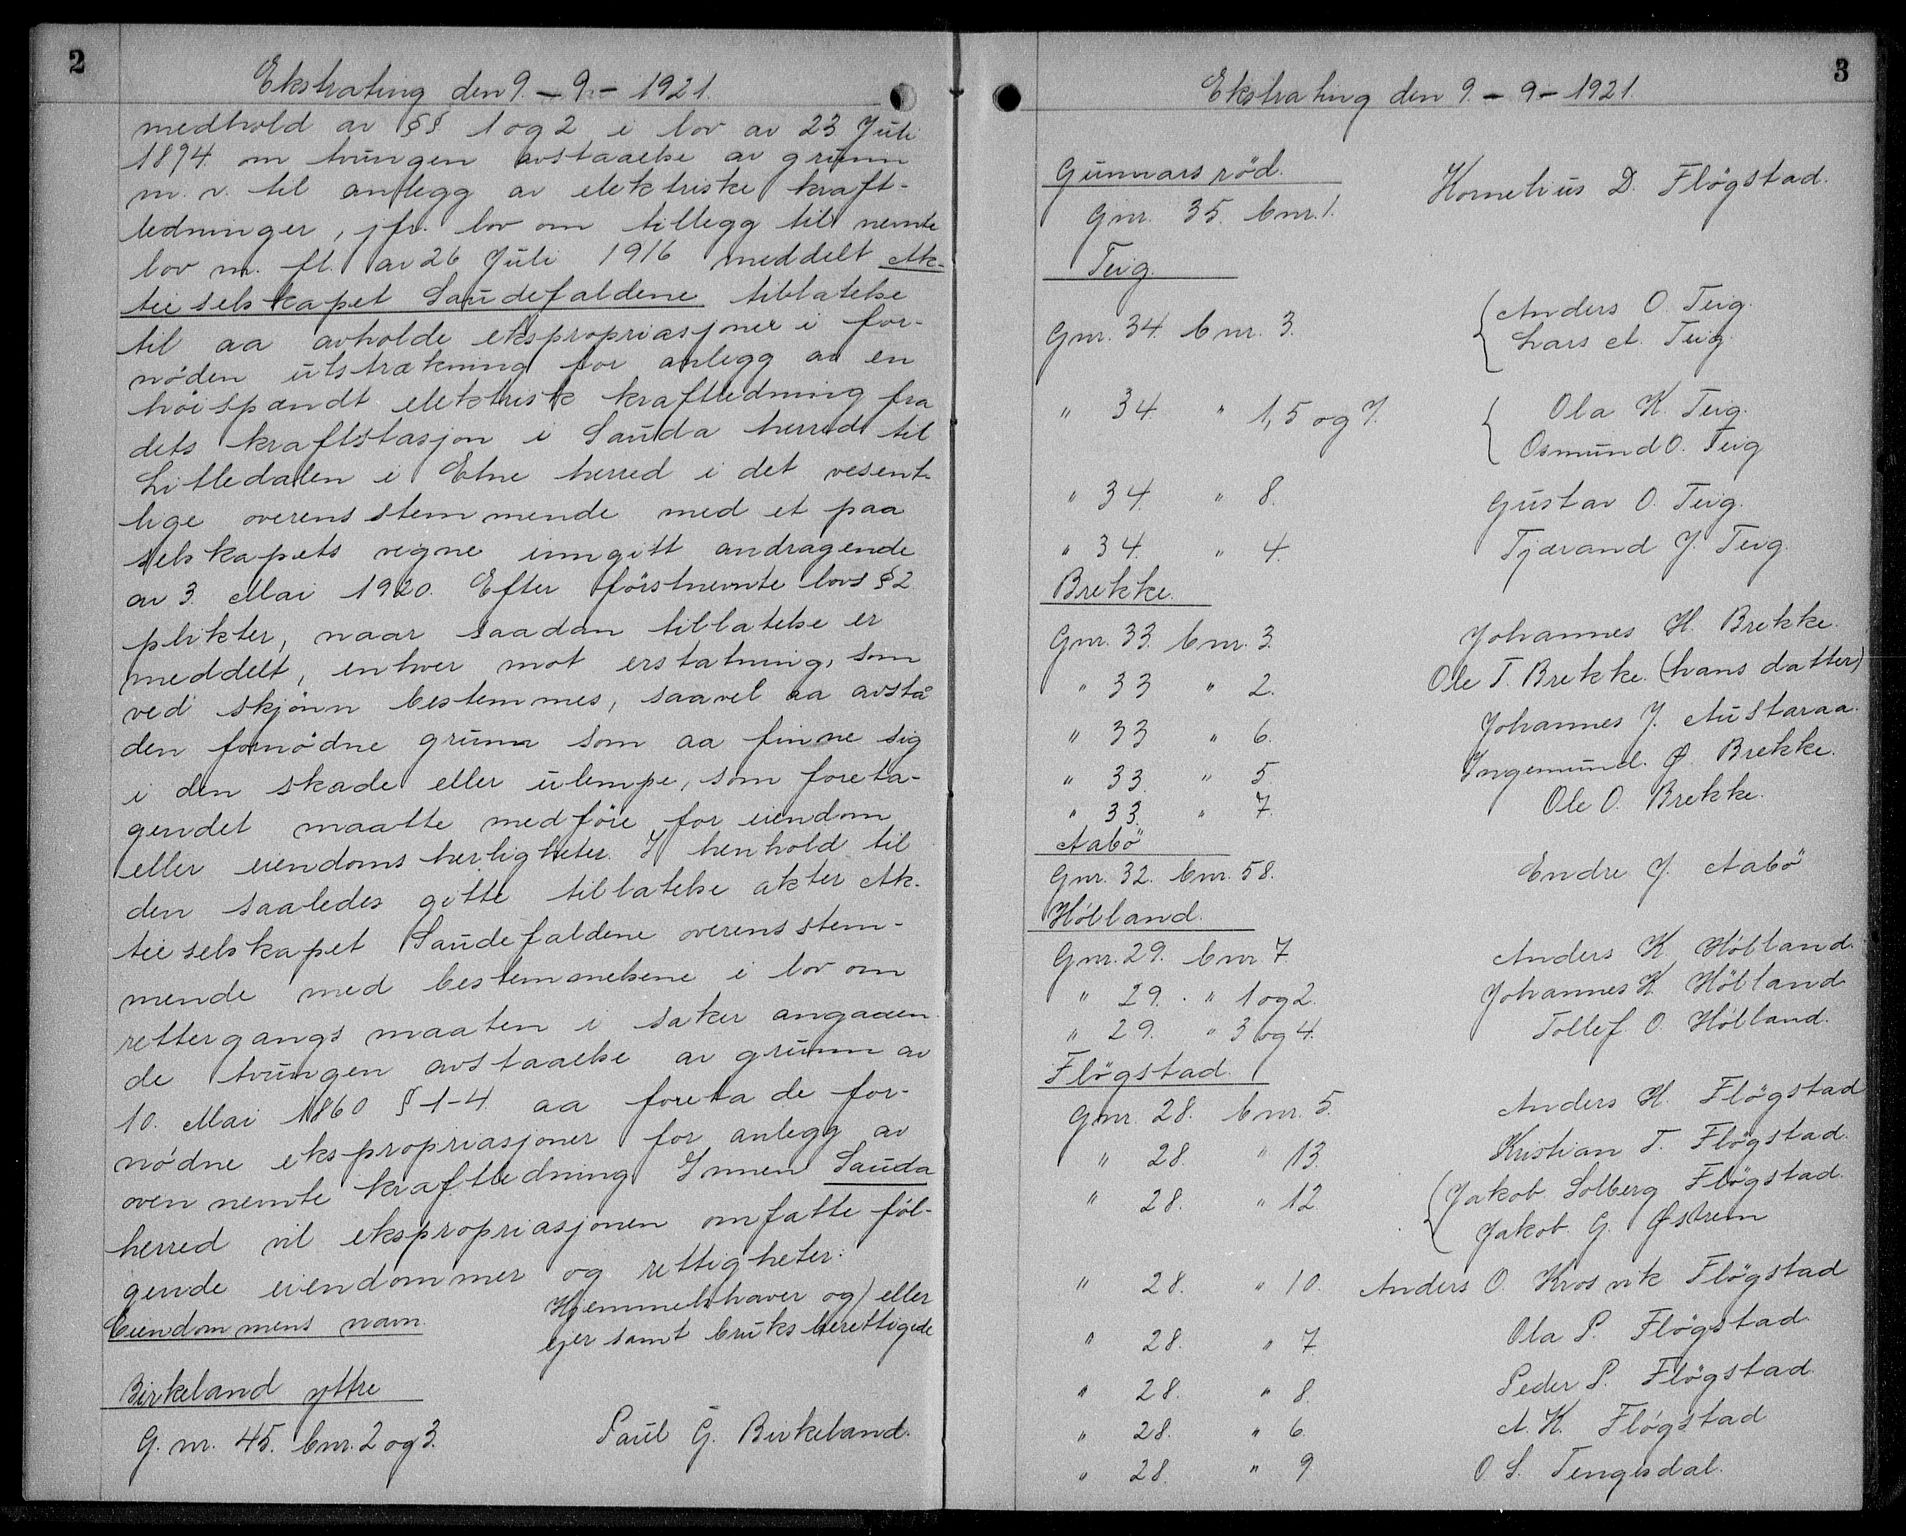 2
Ekstrating den 9. - 9 - 1921.
medhold av §§ 1 og 2 i lov av 23 Juli
1894 om tvungen avstaaelse av grunn
m. v. til anlegg av elektriske kraft-
ledninger, jfr. lov om tillegg til nevnte
lov m. fl. av 26 Juli 1916 meddelt Ak-
tieselskapet Saudefaldene tillatelse
til aa avholde ekspropriasjoner i for-
nøden utstrækning for anlegg av en
høispændt elektrisk kraftledning fra
dets kraftstasjon i Sauda herred til
Litledalen i Etne herred i det vesent-
lige overensstemmende med et paa
selskapets vegne inngitt andragende
av 3. Mai 1920. Efter førstnevnte lovs § 2
plikter, naar saadan tillatelse er
meddelt, enhver mot erstatning, som
ved skjønn bestemmes, saavel aa avstå
den fornødne grunn som aa finne sig
i den skade eller ulempe, som foreta-
gendet maatte medføre for eiendom
eller eiendomsherligheter. I henhold til
den saaledes gitte tillatelse akter Ak-
tieselskapet Saudefaldene overensstem-
mende med bestemmelsene i lov om
rettergangsmaaten i saker angaaen-
de tvungen avstaaelse av grunn av
10. Mai 1860 § 1-4 aa foreta de for-
nødne ekspropriasjoner for anlegg av
ovennevnte kraftledning. Innen Sauda
herred vil ekspropriasjonen omfatte føl-
gende eiendommer og rettigheter:
Eiendommens navn. Hjemmelshaver og) eller
ejer samt bruksberettigede
Birkeland yttre
G. nr. 45. bnr. 2 og 3. Paul G. Birkeland.
3
Ekstrating den 9. - 9 - 1921.
Gunnarsrød.
Gnr. 35. bnr. 1. Kornelius D. Fløgstad.
Teig.
Gnr. 34. bnr. 3. { Anders O. Teig.
Lars A. Teig.
" 34 " 1, 5 og 7. { Ola K. Teig.
Osmund O. Teig
" 34. " 8. Gustav O. Teig.
" 34. " 4. Tjærand J. Teig.
Brekke.
Gnr. 33. bnr. 3. Johannes H. Brekke.
" 33 " 2. Ole T. Brekke. (hans datter)
" 33 " 6. Johannes J. Austaraa.
" 33. " 5. Ingemund Ø. Brekke.
" 33. " 7. Ole O. Brekke.
Aabø
Gnr. 32. bnr. 58. Endre J. Aabø
Hølland.
Gnr. 29. bnr 7 Anders K. Hølland.
" 29. " 1 og 2. Johannes K. Hølland.
" 29. " 3 og 4. Tollef O. Hølland.
Fløgstad.
Gnr. 28. bnr. 5. Anders H. Fløgstad
" 28. " 13. Kristian T. Fløgstad.
" 28. " 12 { Jakob Solberg Fløgstad.
Jakob G. Østrem
" 28. " 10. Anders O. Krosvik Fløgstad
" 28. " 7. Ola P. Fløgstad.
" 28. " 8. Peder P. Fløgstad.
" 28. " 6. A. K. Fløgstad
" 28. " 9. O. S. Tengesdal.